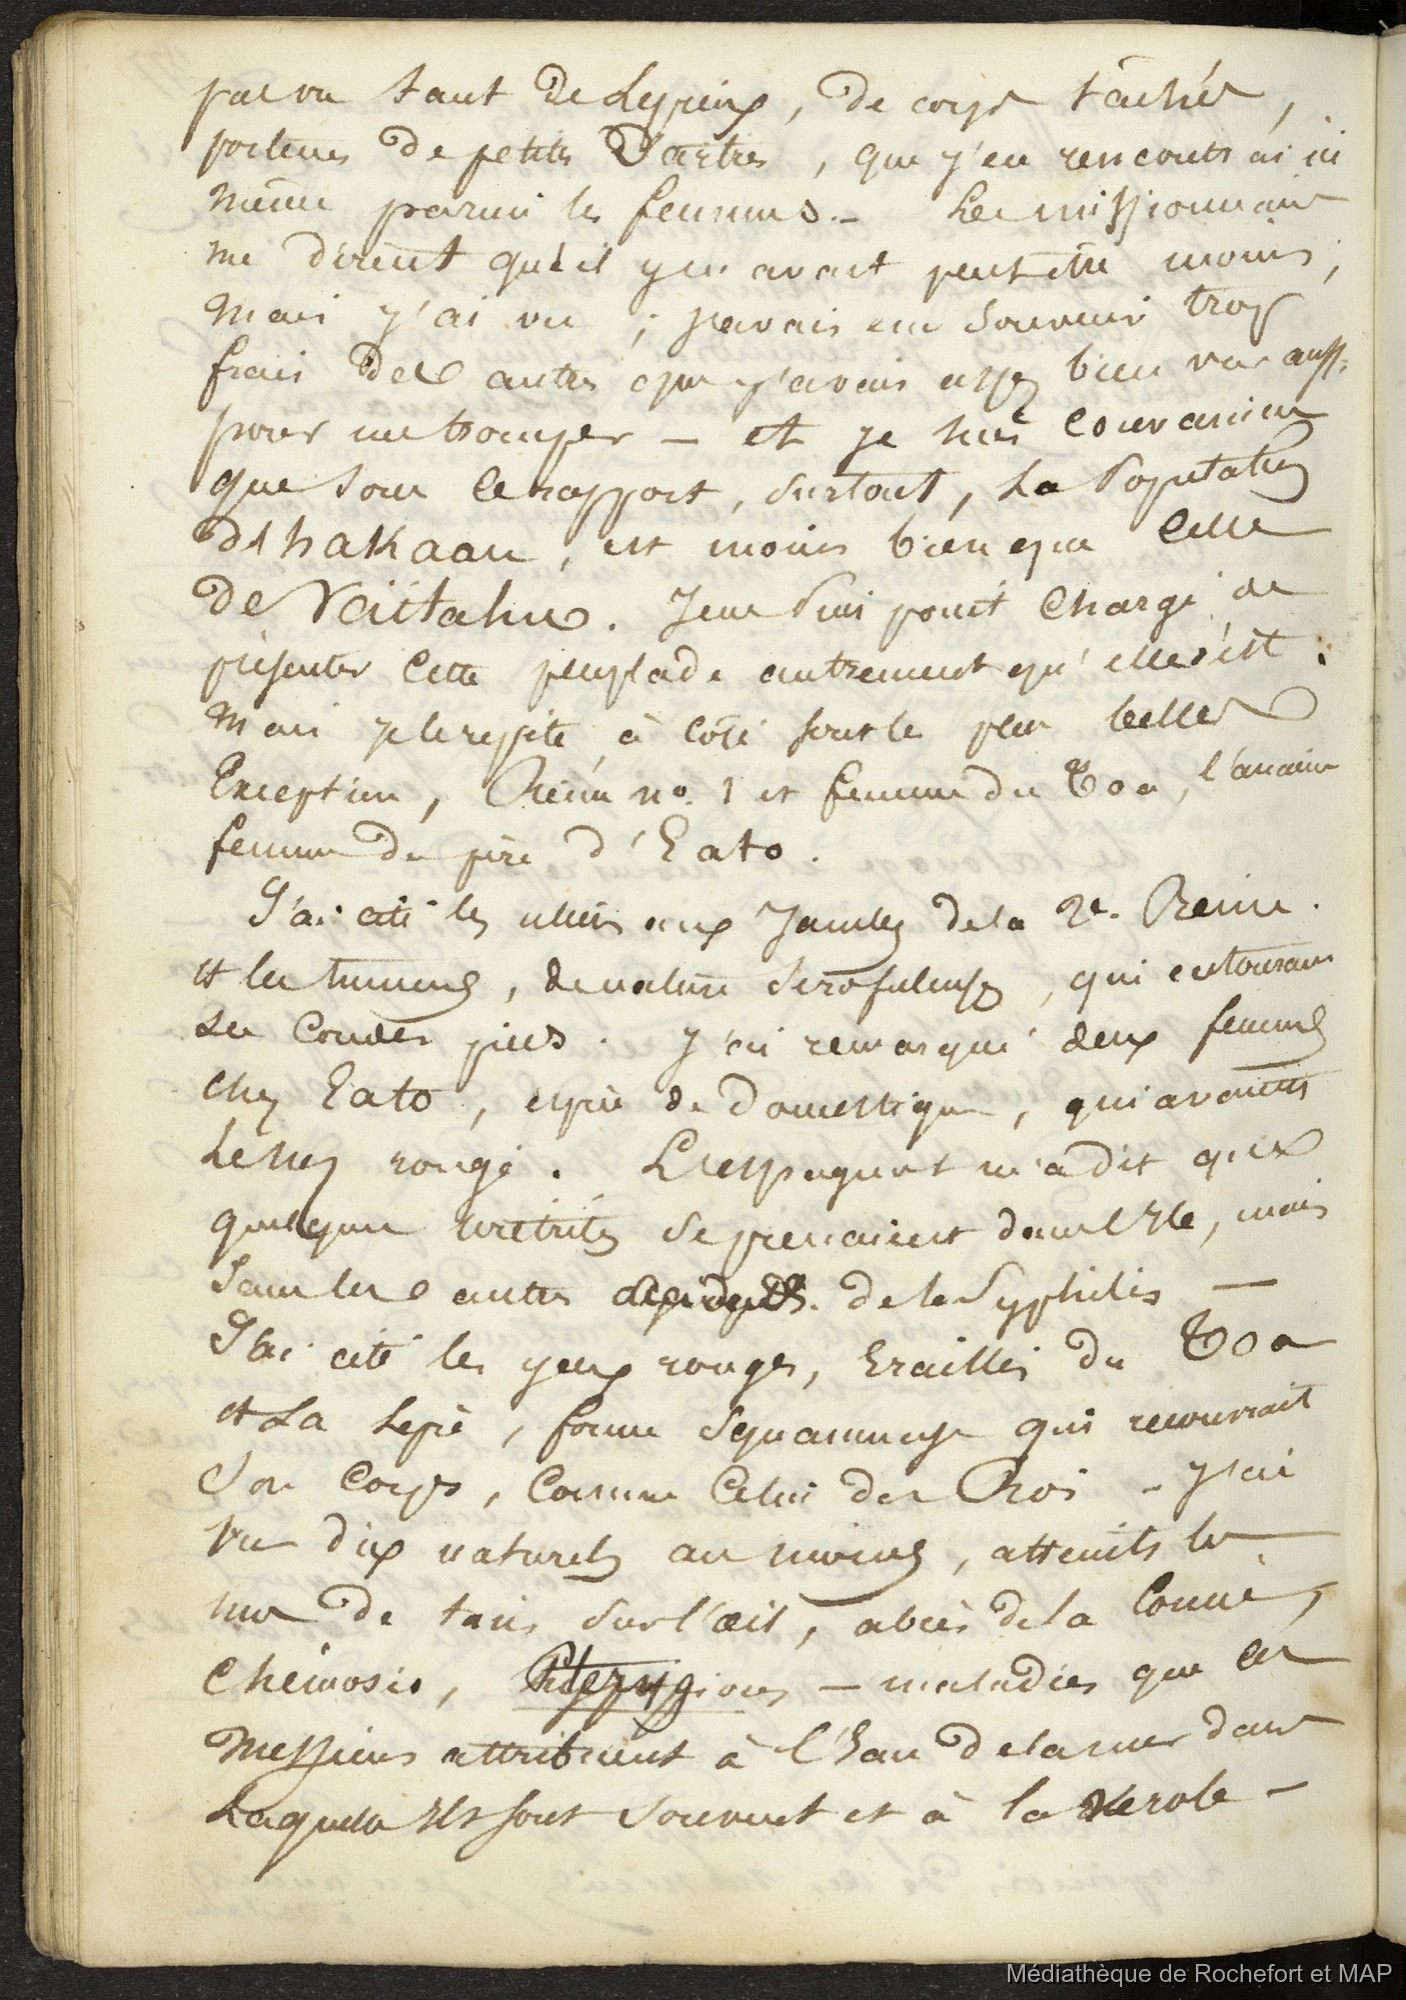 pas vu tant de Lepreux, de corps tâchés,
porteurs de petits Dartres, que j'en rencontrai ici
même parmi les femmes. - Les missionnaires
me dirent qu'il y en avait peut être moins,
mais j'ai vu ; j'avais un souvenir trop
frais des autres que j'avais assez bien vus aussi
pour me tromper - et je suis convaincu
que sous ce rapport, surtout, la Population
d'hakaau, est moins bien que celle
de Vaïtahu. Je ne suis point chargé de
présenter cette peuplade autrement qu'elle n'est :
mais je le repète, à côté sont les plus belles
Exception, Reine no. 1 et femme du Toa, l'ancienne
femme du père d'Eato.
J'ai cité les ulcères aux Jambes de la 2e. Reine.
et les tumeurs, de nature scrofuleuse, qui entouraient
les Coudes pieds. J'ai remarqué deux femmes
chez Eato, espèce de Domestiques, qui avaient
le nez rongé. L'espagnol m'a dit que
quelques uretrites se prenaient dans l'Ile, mais
sans les autres de la Syphilis —
J'ai cité les yeux rouges, Eraillés du Toa
et La Lepre, forme squammeuse qui recouvrait
son Corps, comme celui du Roi - j'ai
vu dix naturels au moins, atteints les
uns de taies sur l'œil, abcès de la Cornée,
chemosis, Pterygions — maladies que ces
Messieurs attribuent à l'Eau de la mer dans
Laquelle ils sont souvent et à la Verole -
Médiathèque de Rochefort et MAP